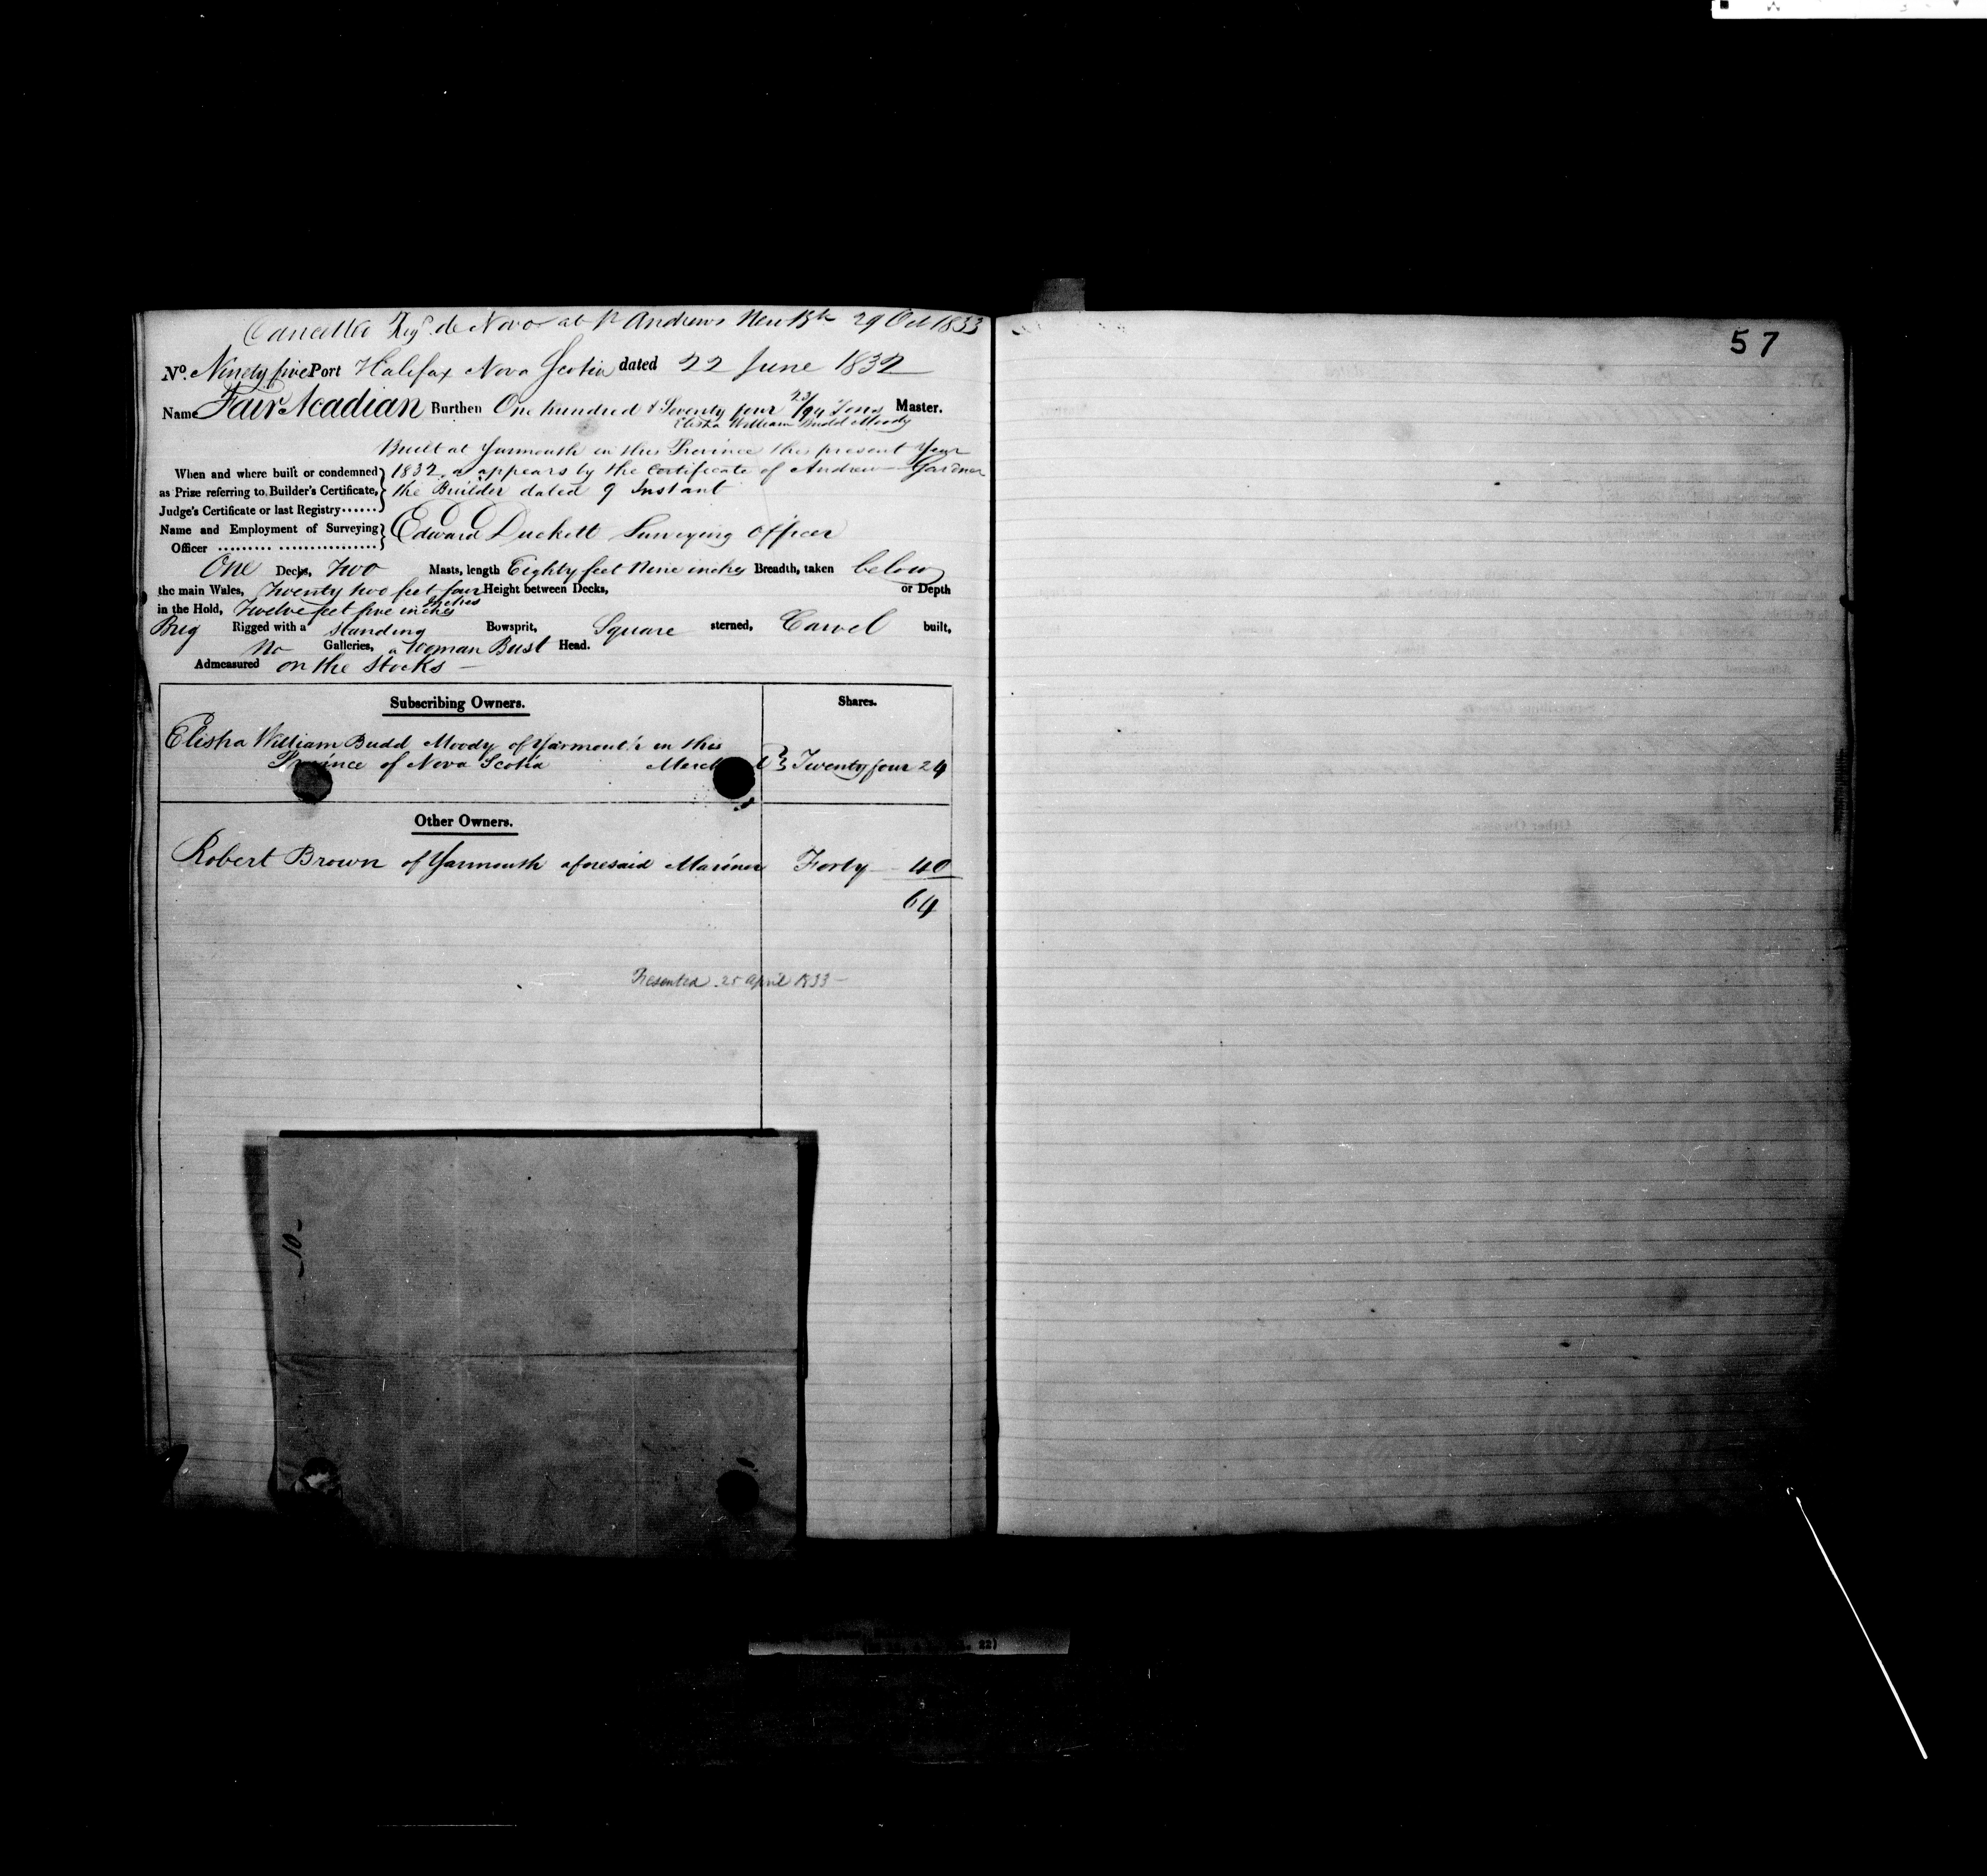 Cancelled Reg.d de Novo at St Andrews New Bk 29 Oct 1833
No. Ninety five Port Halifax Nova Scotia dated 22 June 1832
Name Fair Acadian Burthen One hundred & Seventy four 23/94 Tons Master.
Elisha William Budd Moody
Built at Yarmouth in this Province this present Year
When and where built or condemned 1832, as appears by the Certificate of Andrew Gardner
as Prize referring to Builder's Certificate, the Builder dated 9 Instant
Judge's Certificate or last Registry......
Name and Employment of Surveying Edward Duckett Surveying Officer
Officer .......... .................
One Decks, Two Masts, length Eighty feet Nine inches Breadth, taken below
the main Wales, Twenty two feet four inches Height between Decks, or Depth
in the Hold, Twelve feet five inches
Brig Rigged with a standing Bowsprit, Square sterned, Carvel built,
No Galleries, a Woman Bust Head.
Admeasured on the Stocks —
Subscribing Owners. Shares.
Elisha William Budd Moody of Yarmouth in this
Province of Nova Scotia Twenty four 24
Other Owners.
Robert Brown of Yarmouth aforesaid Mariner Forty 40
64
Presented 25 April 1833 —
— 10 —
57
22)